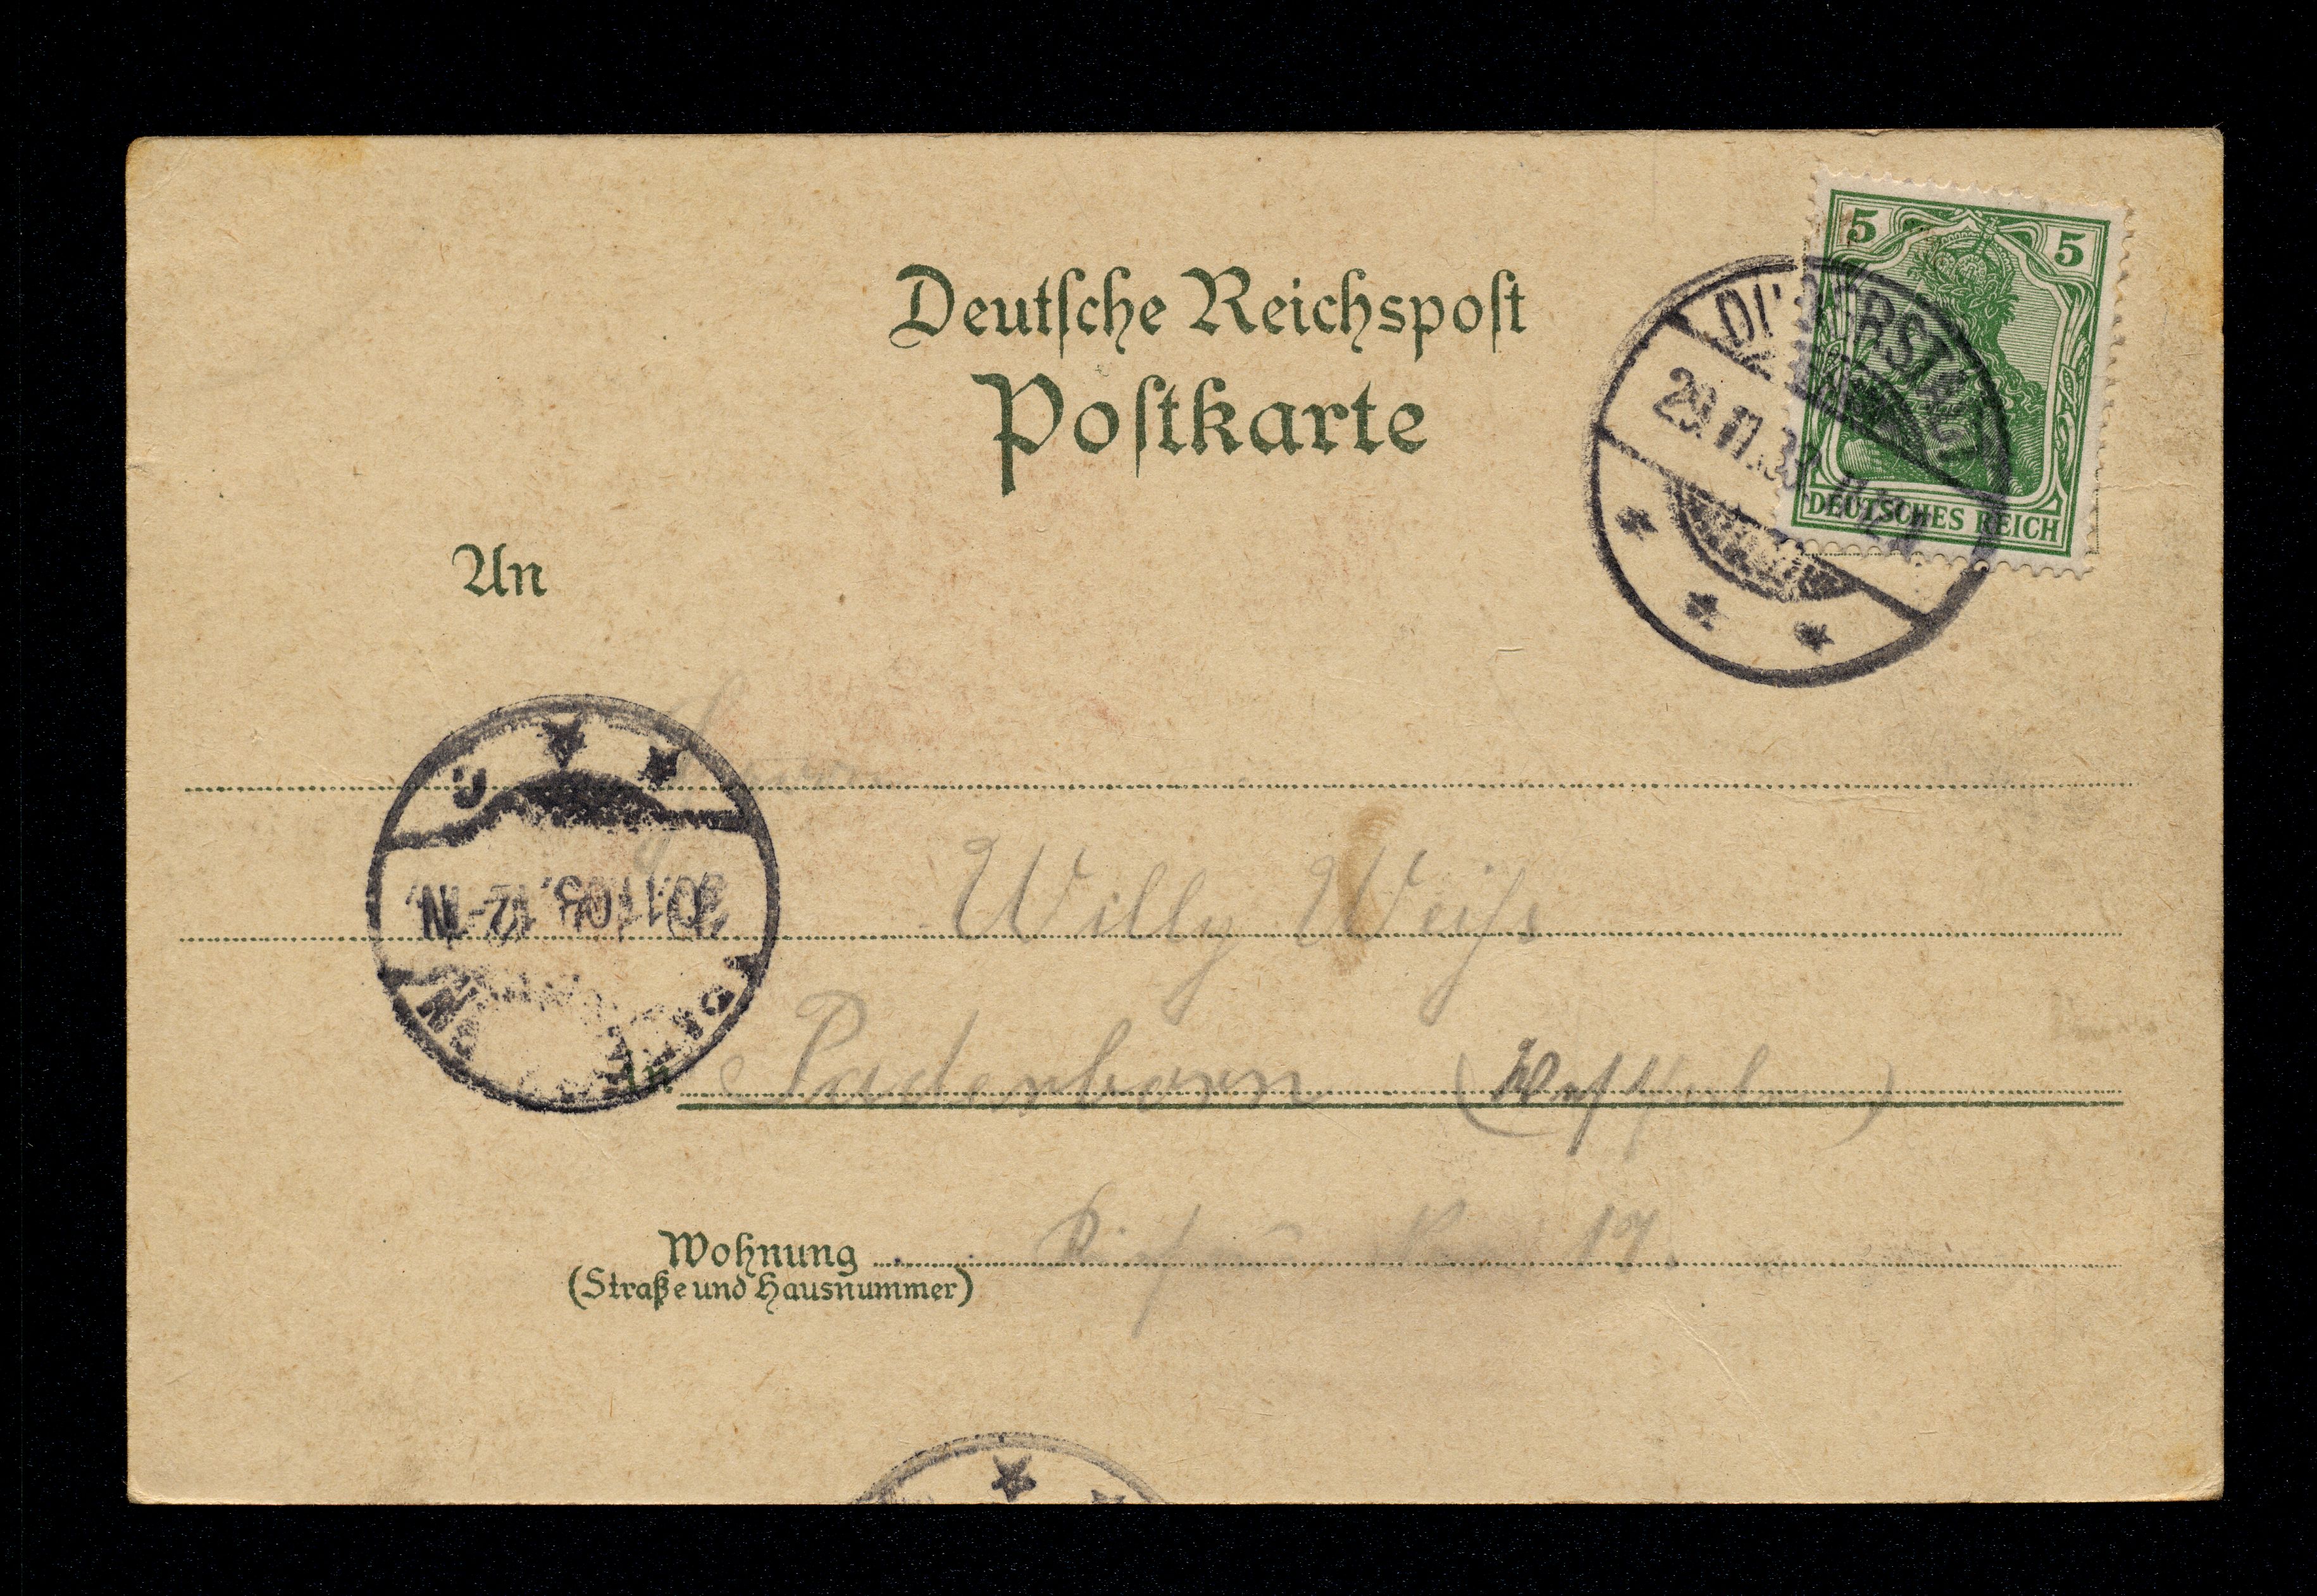 5 5
DEUTSCHES REICH
Deutsche Reichspost
Postkarte
DUDERSTADT
29.11.03
An
Herrn
Willy Weiß
in Paderborn (Westfalen)
Wohnung 17.
(Straße und Hausnummer)
30.11.03. 12-1N.